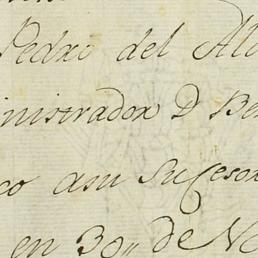 Pedro del Al
nistrador D Be
co asu Sucesor
en 30,, de No